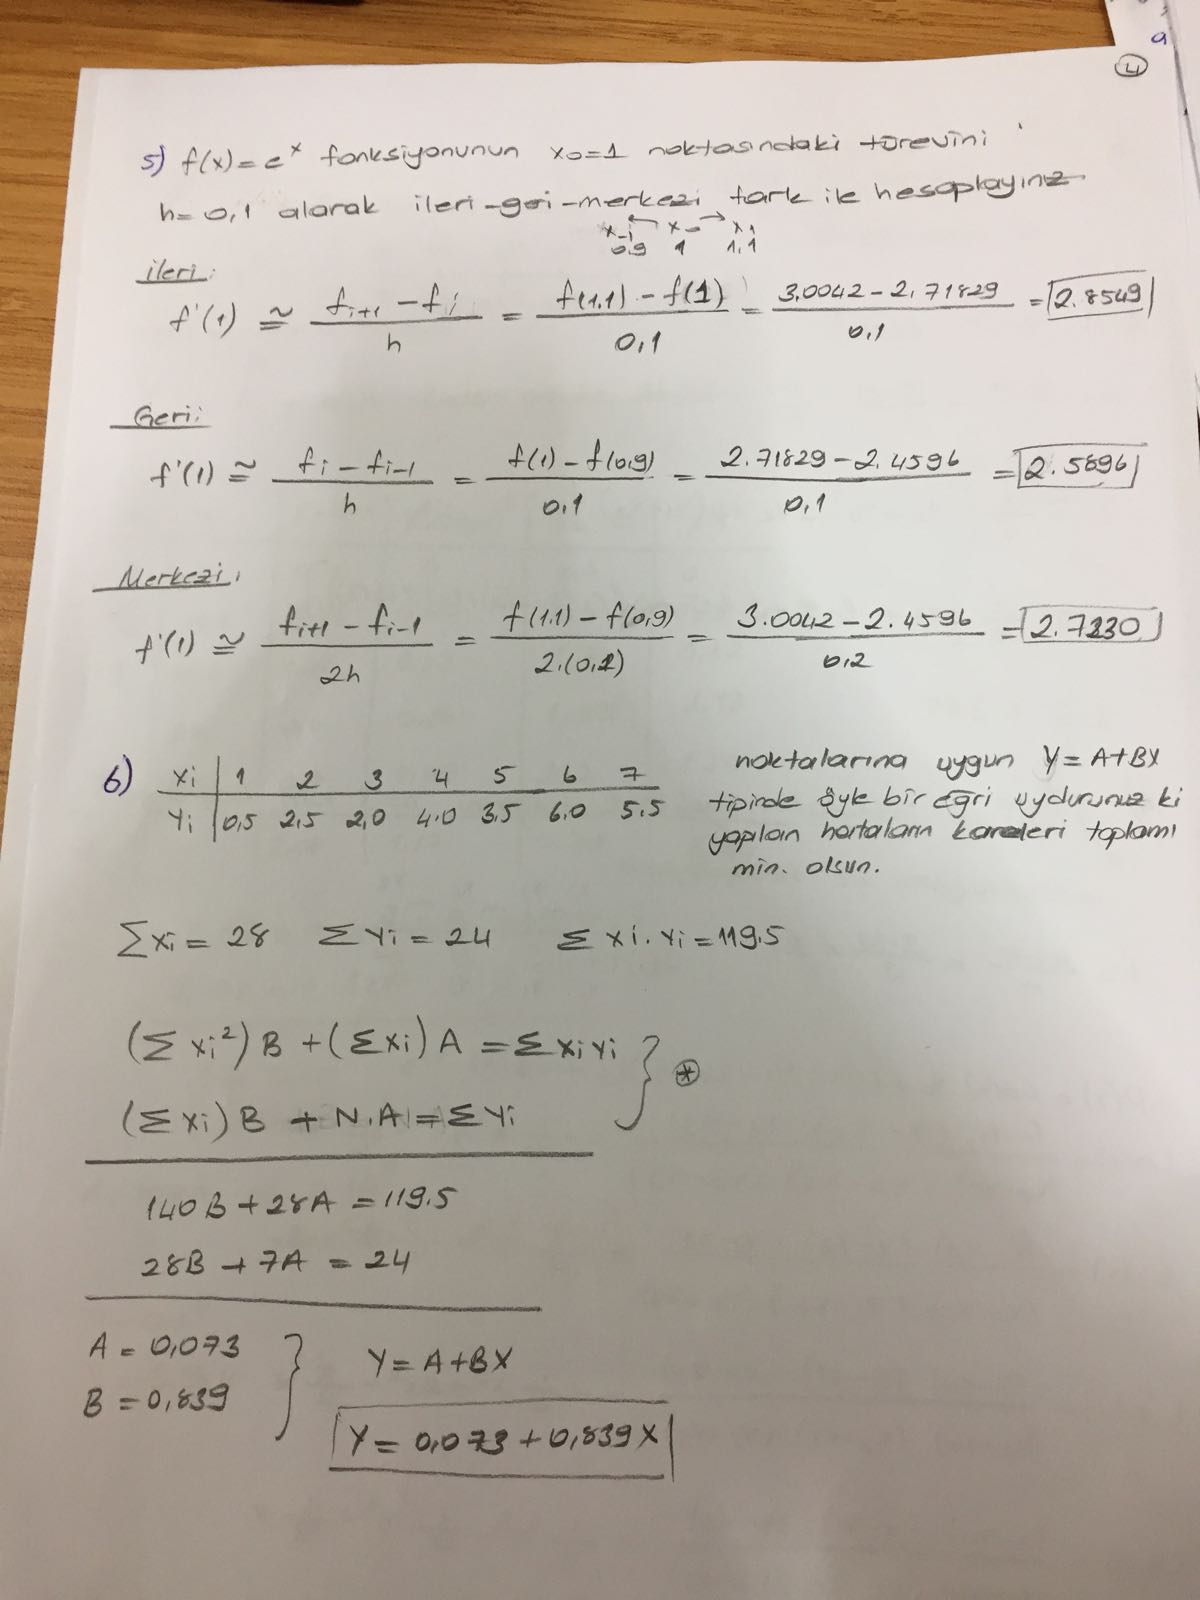 4
5) f(x) = e^x fonksiyonunun x0=1 noktasındaki türevini
h=0,1 alarak ileri-geri-merkezi fark ile hesaplayınız
x-1 ← x0 → x1
0.9 1 1.1
ileri:
f'(1) ≅ (fi+1 - fi)/h = (f(1.1) - f(1))/0,1 = (3.0042 - 2.71829)/0,1 = 2.8549
Geri:
f'(1) ≅ (fi - fi-1)/h = (f(1) - f(0,9))/0,1 = (2.71829 - 2.4596)/0,1 = 2.5896
Merkezi:
f'(1) ≅ (fi+1 - fi-1)/2h = (f(1.1) - f(0,9))/2.(0,1) = (3.0042 - 2.4596)/0,2 = 2.7230
6) xi | 1 2 3 4 5 6 7
Yi | 0,5 2,5 2,0 4.0 3,5 6.0 5.5
noktalarına uygun Y = A+BX
tipinde öyle bir eğri uydurunuz ki
yapılan hataların kareleri toplamı
min. olsun.
Σxi = 28 ΣYi = 24 Σxi.Yi = 119.5
(Σxi²)B + (Σxi)A = Σxiyi
(Σxi)B + N.A = ΣYi } *
140B + 28A = 119.5
28B + 7A = 24
A = 0,073
B = 0,839
Y = A+BX
Y = 0,073 + 0,839X